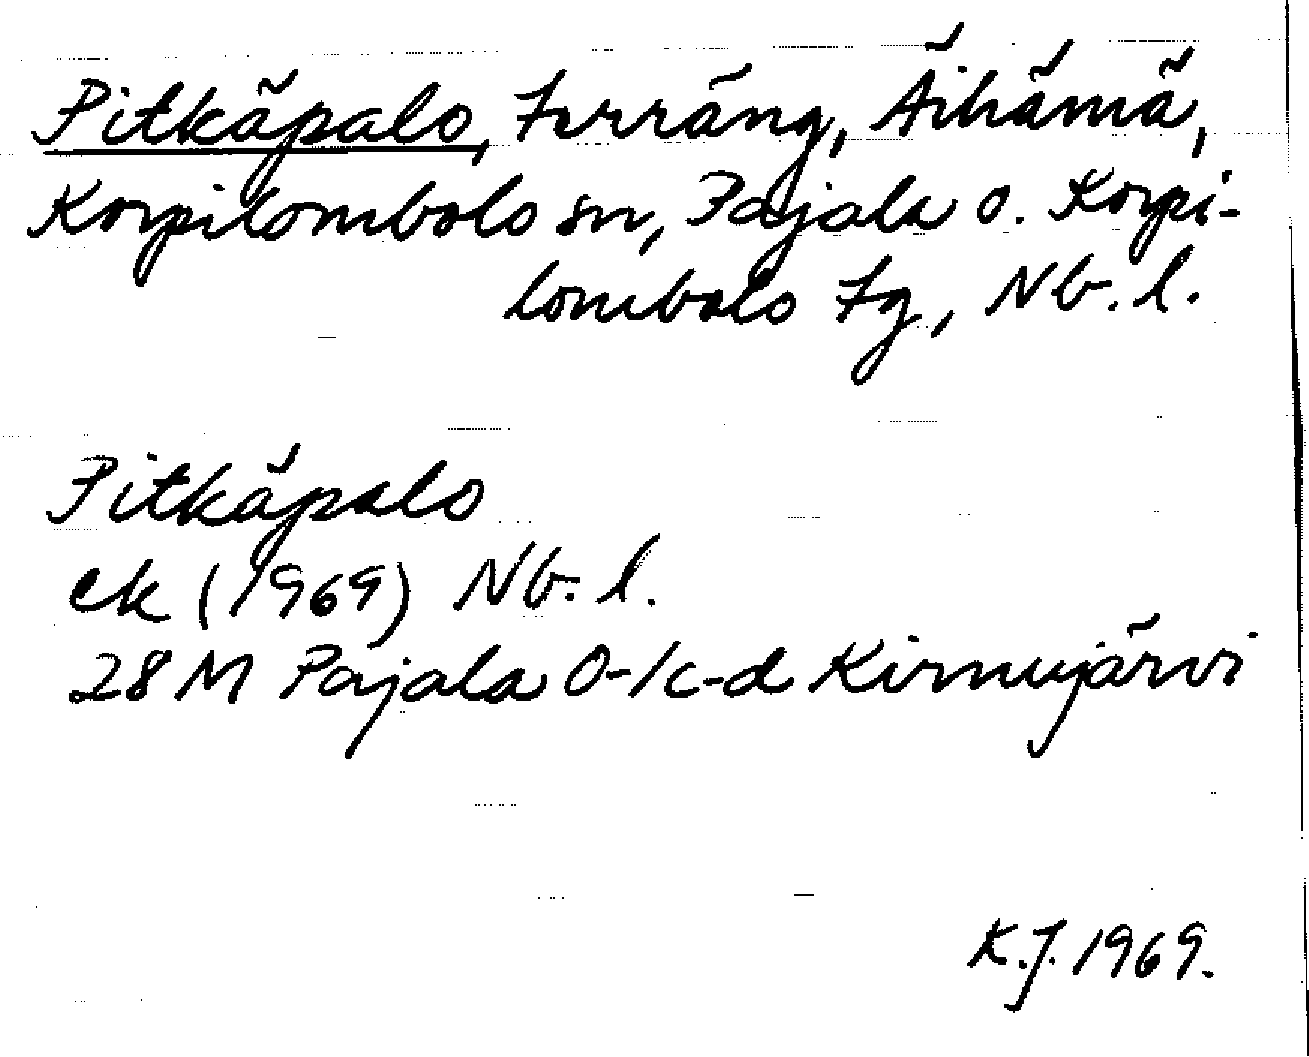 Pitkäpalo, Terräng, Äihämä,
Korpilombolo sn, Pajala o. Korpi-
lombolo tg, Nb. l.
Pitkäpalo
ek (1969) Nb. l.
28 M Pajala 0-1c-d Kirnujärvi
K.J. 1969.